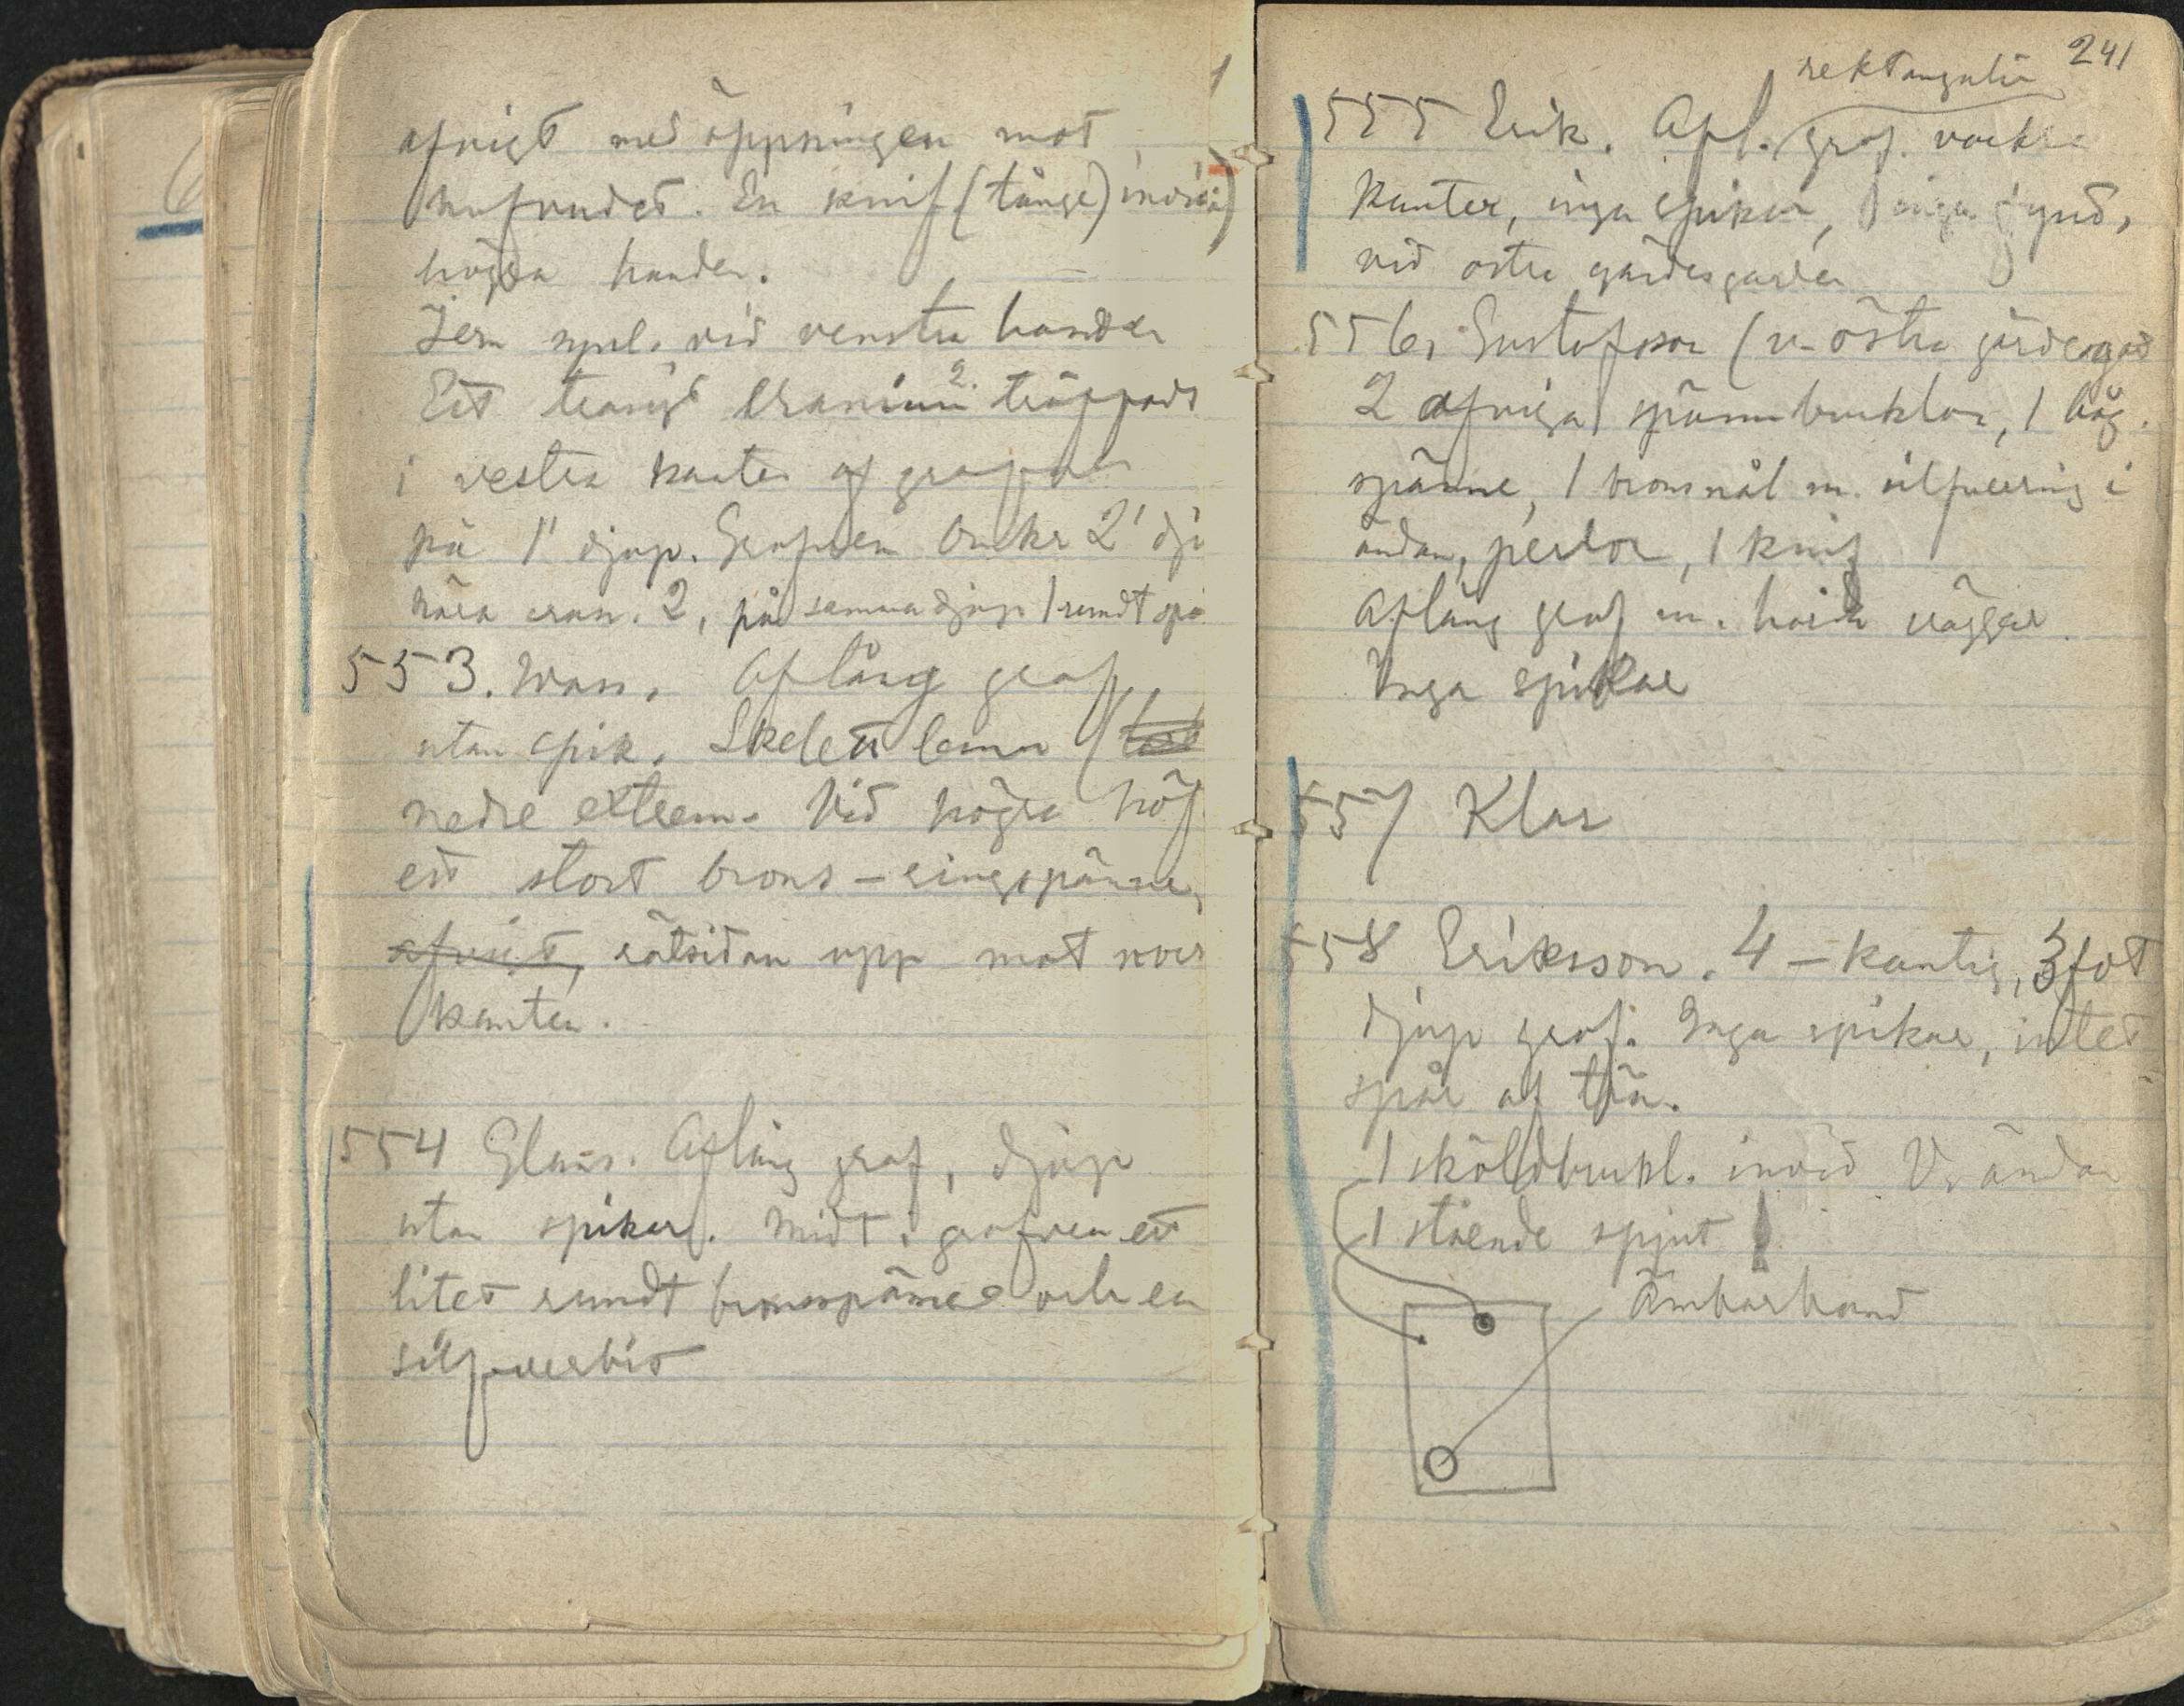 afvigt med öppningen mot
hufvudet. En knif (tånge) invid
högra handen.
Jern spel. vid venstra handen
Ett trasigt Cranium 2. träffads
i vestra kanten af grafven
på 1' djup. Grafven omkr 2' dju
nära cran. 2, på samma djup 1 rundt spä
553. Wass. Aflång graf
utan spik. Skelett lemn
nedre extrem. Vid högra höf
ett stort brons-ringspänne,
afvigt, rätsidan upp mot norr
kanten.
554 Glans. Aflång graf, djup
utan spikar. Midt i grafven ett
litet rundt bronsspänne och en
silfverbit
241
rektangulär
555 Erik. Afl. graf. vackra
kanter, inga spikar, inga fynd,
vid östra gärdesgarden
556. Gustafsson (v. östra gärdesgad
2 afviga spännbucklor, 1 båg.
spänne, 1 bronsnål m. silfverring i
ändan, perlor, 1 knif
Aflång graf m. hårda väggar.
Inga spikar
557 Klar
558 Eriksson. 4-kantig, 3 fot
djup graf. Inga spikar, intet
spår af trä.
1 sköldbuckl. invid V. ändan
1 stående spjut
Ämbarband